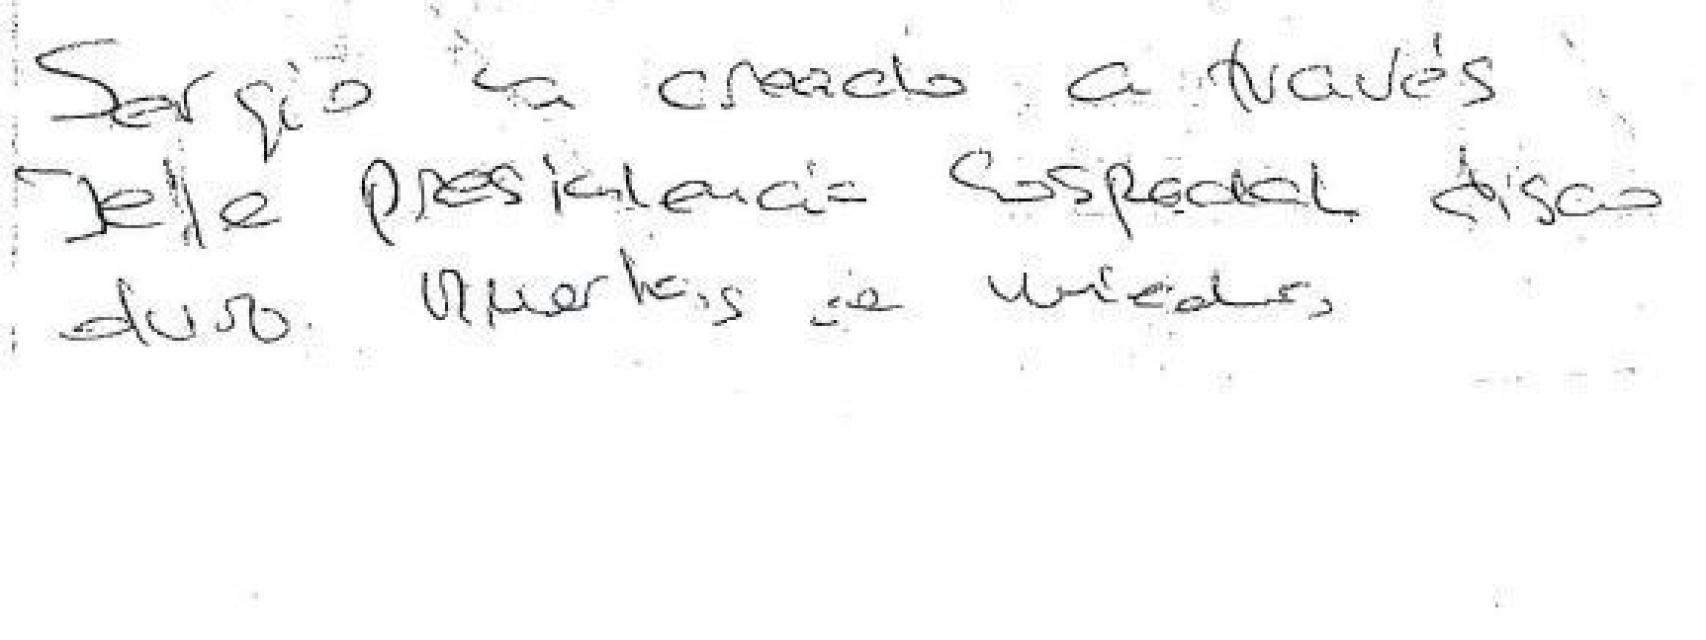 Sergio ha creado a través
Jefe presidencia Cospedal disco
duro. Muertos de miedo,